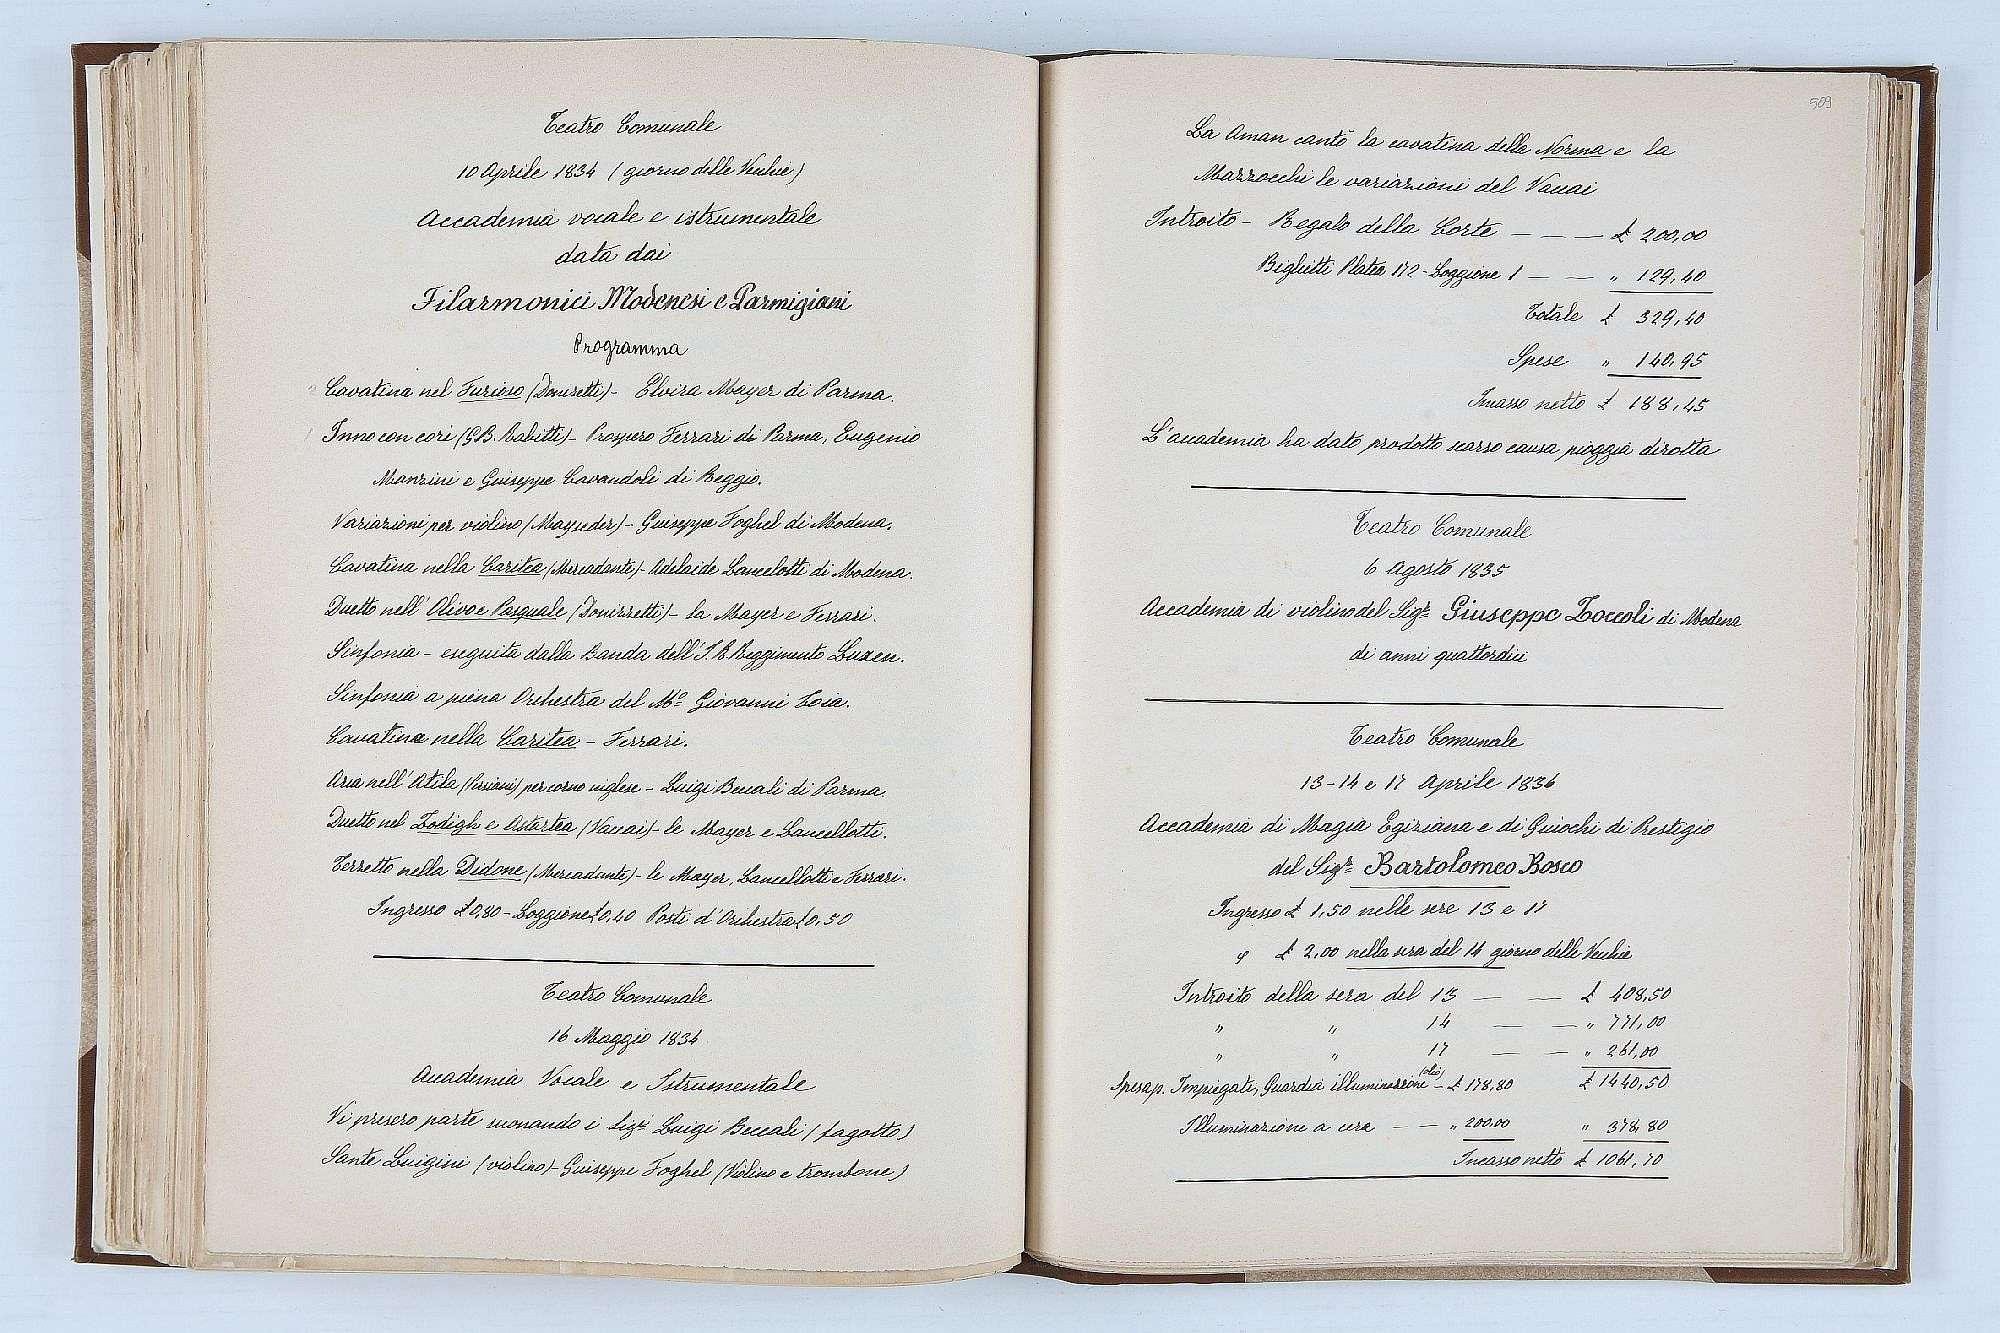 Teatro Comunale
10 Aprile 1834 (giorno delle Vecchie)
Accademia vocale e istrumentale
data dai
Filarmonici Modenesi e Parmigiani
Programma
Cavatina nel Furioso (Donizetti) - Elvira Mayer di Parma.
Inno con cori (GB. Rabitti) - Prospero Ferrari di Parma, Eugenio
Manzini e Giuseppe Cavandoli di Reggio.
Variazioni per violino (Mayseder) - Giuseppe Foghel di Modena.
Cavatina nella Caritea (Mercadante) - Adelaide Lancelotti di Modena.
Duetto nell' Olivo e Pasquale (Donizzetti) - la Mayer e Ferrari.
Sinfonia - eseguita dalla Banda dell' I.R. Reggimento Luxen.
Sinfonia a piena Orchestra del Mº Giovanni
Cavatina nella Caritea - Ferrari.
Aria nell' Atila (Persiani) per corno inglese - Luigi Beccali di Parma
Duetto nel Zadigh e Astartea (Vaccai) - le Mayer e Lancellotti.
Terzetto nella Didone (Mercadante) - le Mayer, Lancellotti e Ferrari.
Ingresso £ 0,80 - Loggione £ 0,40 Posti d' Orchestra £ 0,50
Teatro Comunale
16 Maggio 1834
Accademia Vocale e Istrumentale
Vi presero parte suonando i Sigri Luigi Beccali (fagotto)
Sante Luigini (violino) - Giuseppe Foghel (Violino e trombone)
509
La Aman cantò la cavatina della Norma e la
Mazzocchi le variazioni del Vaccai
Introito - Regalo della Corte — — — £ 200,00
Biglietti Platea 172 - Loggione 1 — — " 129,40
Totale £ 329,40
Spese " 140,95
Incasso netto £ 188,45
L'accademia ha dato prodotto scarso causa pioggia dirotta
Teatro Comunale
6 Agosto 1835
Accademia di violino del Sigr Giuseppe Zoccoli di Modena
di anni quattordici
Teatro Comunale
13-14 e 17 Aprile 1836
Accademia di Magia Egiziana e di Giuochi di Prestigio
del Sigr Bartolomeo Bosco
Ingresso £ 1,50 nelle sere 13 e 17
e £ 2,00 nella sera del 14 giorno delle Vecchie
Introito della sera del 13 — — £ 408,50
" " 14 — — " 771,00
" " 17 — — " 261,00
Spesa p. Impiegati, Guardia illuminazione (olio) - £ 178,80 £ 1440,50
Illuminazione a cera — — " 200,00 " 378,80
Incasso netto £ 1061,70